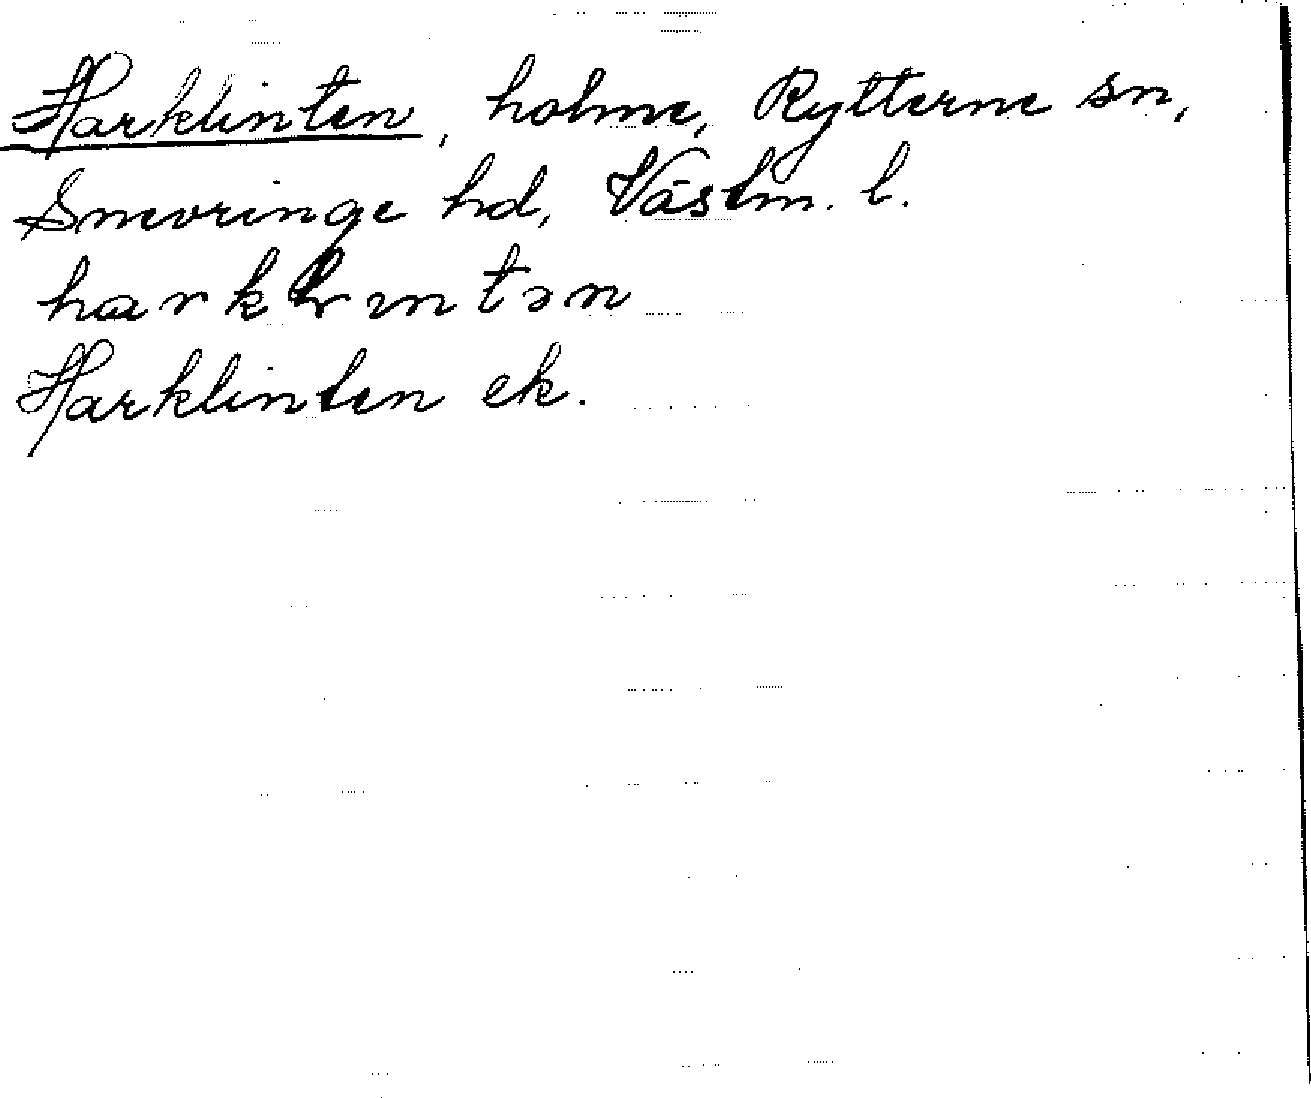 Harklinten, holme, Rytterne sn,
Snevringe hd, Västm. l.
harklintən
Harklinten ek.